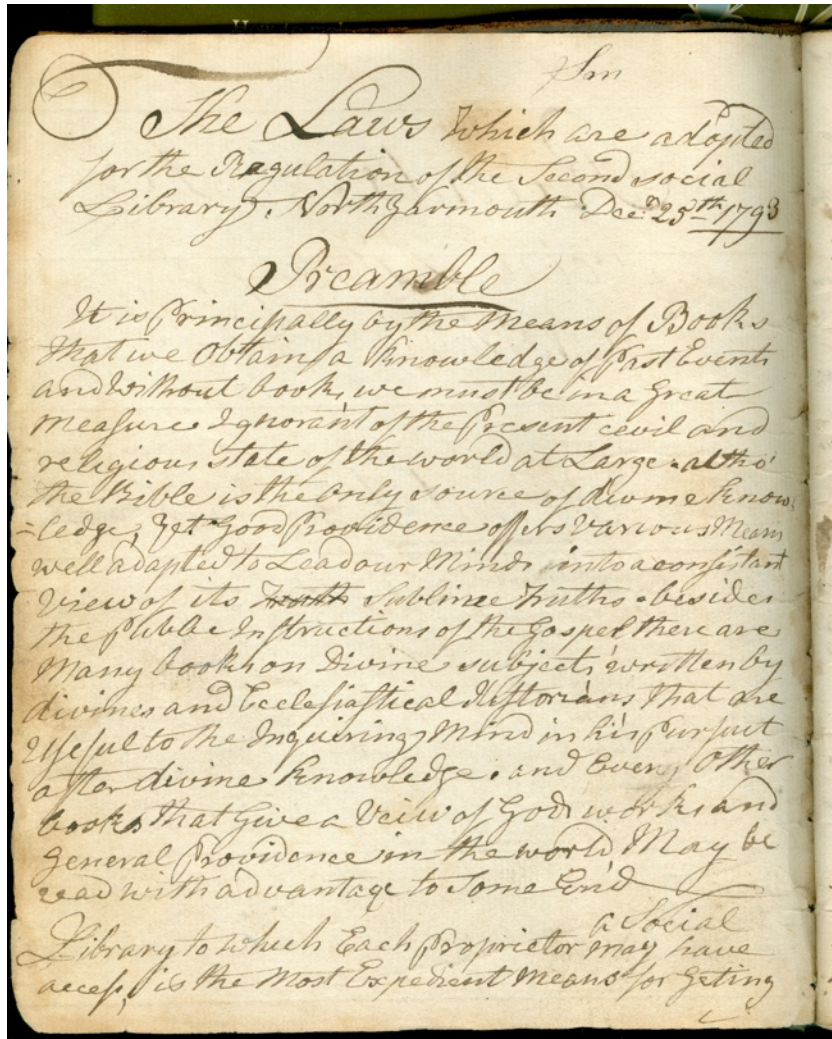 The Laws Which are adopted
for the Regulation of the Second social
Library, North Yarmouth Decr. 25th 1793
Preamble
It is Principally by the Means of Books
that we Obtain a Knowledge of Past Events
and without books we must be in a Great
measure Ignorant of the Present cevil and
religious state of the world at Large. altho'
the Bible is the Only source of divine Know-
=ledge, Yet Good Providence offers Various Means
well adapted to Lead our Minds into a consistant
View of its Truth Sublime truths. besides
the Public Instructions of the Gospel there are
Many books on Divine subjects written by
divines and Ecclesiastical Historians that are
Useful to the Inquiring Mind in his Pursuit
after divine Knowledge. and Even Other
books that Give a Veiw of Gods works and
General Providence in the world May be
read with advantage to Some End
a Social
Library to which Each Proprietor may have
access, is the Most Expedient Means for Geting